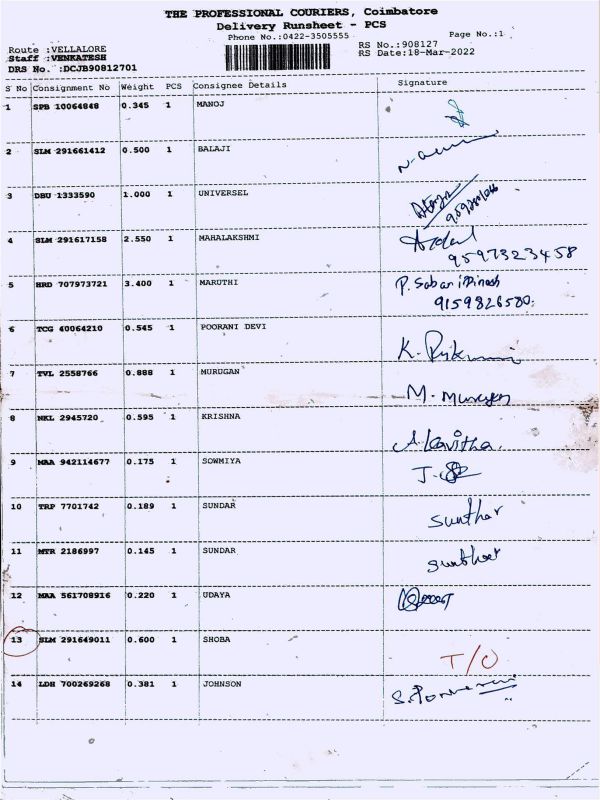 THE PROFESSIONAL COURIERS, Coimbatore
Delivery Runsheet - PCS
Phone No.:0422-3505555
Page No.:1
Route :VELLALORE
Staff :VENKATESH
DRS No. :DCJB90812701
RS No.:908127
RS Date:18-Mar-2022
S No Consignment No Weight PCS Consignee Details Signature
1 SPB 10064848 0.345 1 MANOJ
2 SLM 291661412 0.500 1 BALAJI
3 DBU 1333590 1.000 1 UNIVERSEL
4 SLM 291617158 2.550 1 MAHALAKSHMI
9597323458
5 HRD 707973721 3.400 1 MARUTHI P. Sabari
9159826580
6 TCG 40064210 0.545 1 POORANI DEVI
K.
7 TVL 2558766 0.888 1 MURUGAN
M. Murugan
8 NKL 2945720 0.595 1 KRISHNA
A. Kavitha.
9 MAA 942114677 0.175 1 SOWMIYA
J.
10 TRP 7701742 0.189 1 SUNDAR
Sunthar
11 MTR 2186997 0.145 1 SUNDAR
12 MAA 561708916 0.220 1 UDAYA
13 SLM 291649011 0.600 1 SHOBA
T/O
14 LDH 700269268 0.381 1 JOHNSON
S.